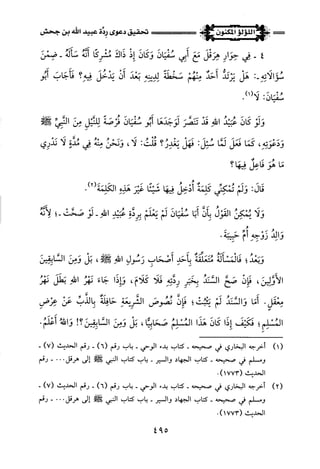 اللؤلؤ المكنون
تحقيق دعوى ردة عبيد الله بن جحش
٤ - فِي حِوَارِ هِرَقْلَ مَعَ أَبِي سُفْيَانَ وَكَانَ إِذْ ذَاكَ مُشْرِكًا أَنَّهُ سَأَلَهُ - ضِمْنَ
سُؤَالَاتِهِ -: هَلْ يَرْتَدُّ أَحَدٌ مِنْهُمْ سَخْطَةً لِدِينِهِ بَعْدَ أَنْ يَدْخُلَ فِيهِ؟ فَأَجَابَ أَبُو
سُفْيَانَ: لَا(١).
وَلَوْ كَانَ عُبَيْدُ اللهِ قَدْ تَنَصَّرَ لَوَجَدَهَا أَبُو سُفْيَانَ فُرْصَةً لِلنَّيْلِ مِنَ النَّبِيِّ ﷺ
وَدَعْوَتِهِ، كَمَا فَعَلَ لَمَّا سُئِلَ: فَهَلْ يَغْدِرُ؟ قُلْتُ: لَا، وَنَحْنُ مِنْهُ فِي مُدَّةٍ لَا نَدْرِي
مَا هُوَ فَاعِلٌ فِيهَا؟
قَالَ: وَلَمْ تُمْكِنِّي كَلِمَةٌ أُدْخِلُ فِيهَا شَيْئًا غَيْرَ هَذِهِ الْكَلِمَةِ(٢).
وَلَا يُمْكِنُ القَوْلُ بِأَنَّ أَبَا سُفْيَانَ لَمْ يَعْلَمْ بِرِدَّةِ عُبَيْدِ اللهِ - لَوْ صَحَّتْ -؛ لِأَنَّهُ
وَالِدُ زَوْجِهِ أُمِّ حَبِيبَةَ.
وَبَعْدُ؛ فَالْمَسْأَلَةُ مُتَعَلِّقَةٌ بِأَحَدِ أَصْحَابِ رَسُولِ اللهِ ﷺ، بَلْ وَمِنَ السَّابِقِينَ
الأَوَّلِينَ، فَإِنْ صَحَّ السَّنَدُ بِخَبَرِ رِدَّتِهِ فَلَا كَلَامَ، وَإِذَا جَاءَ نَهْرُ اللهِ بَطَلَ نَهْرُ
مَعْقِلٍ. أَمَا وَالسَّنَدُ لَمْ يَثْبُتْ؛ فَإِنَّ نُصُوصَ الشَّرِيعَةِ حَافِلَةٌ بِالذَّبِّ عَنْ عِرْضِ
المُسْلِمِ؛ فَكَيْفَ إِذَا كَانَ هَذَا المُسْلِمُ صَحَابِيًّا، بَلْ وَمِنَ السَّابِقِينَ؟! وَاللهُ أَعْلَمُ.
(١) أخرجه البخاري في صحيحه - كتاب بدء الوحي - باب رقم (٦) - رقم الحديث (٧) -
ومسلم في صحيحه - كتاب الجهاد والسير - باب كتاب النبي ﷺ إلى هرقل... - رقم
الحديث (١٧٧٣).
(٢) أخرجه البخاري في صحيحه - كتاب بدء الوحي - باب رقم (٦) - رقم الحديث (٧) -
ومسلم في صحيحه - كتاب الجهاد والسير - باب كتاب النبي ﷺ إلى هرقل... - رقم
الحديث (١٧٧٣).
٤٩٥